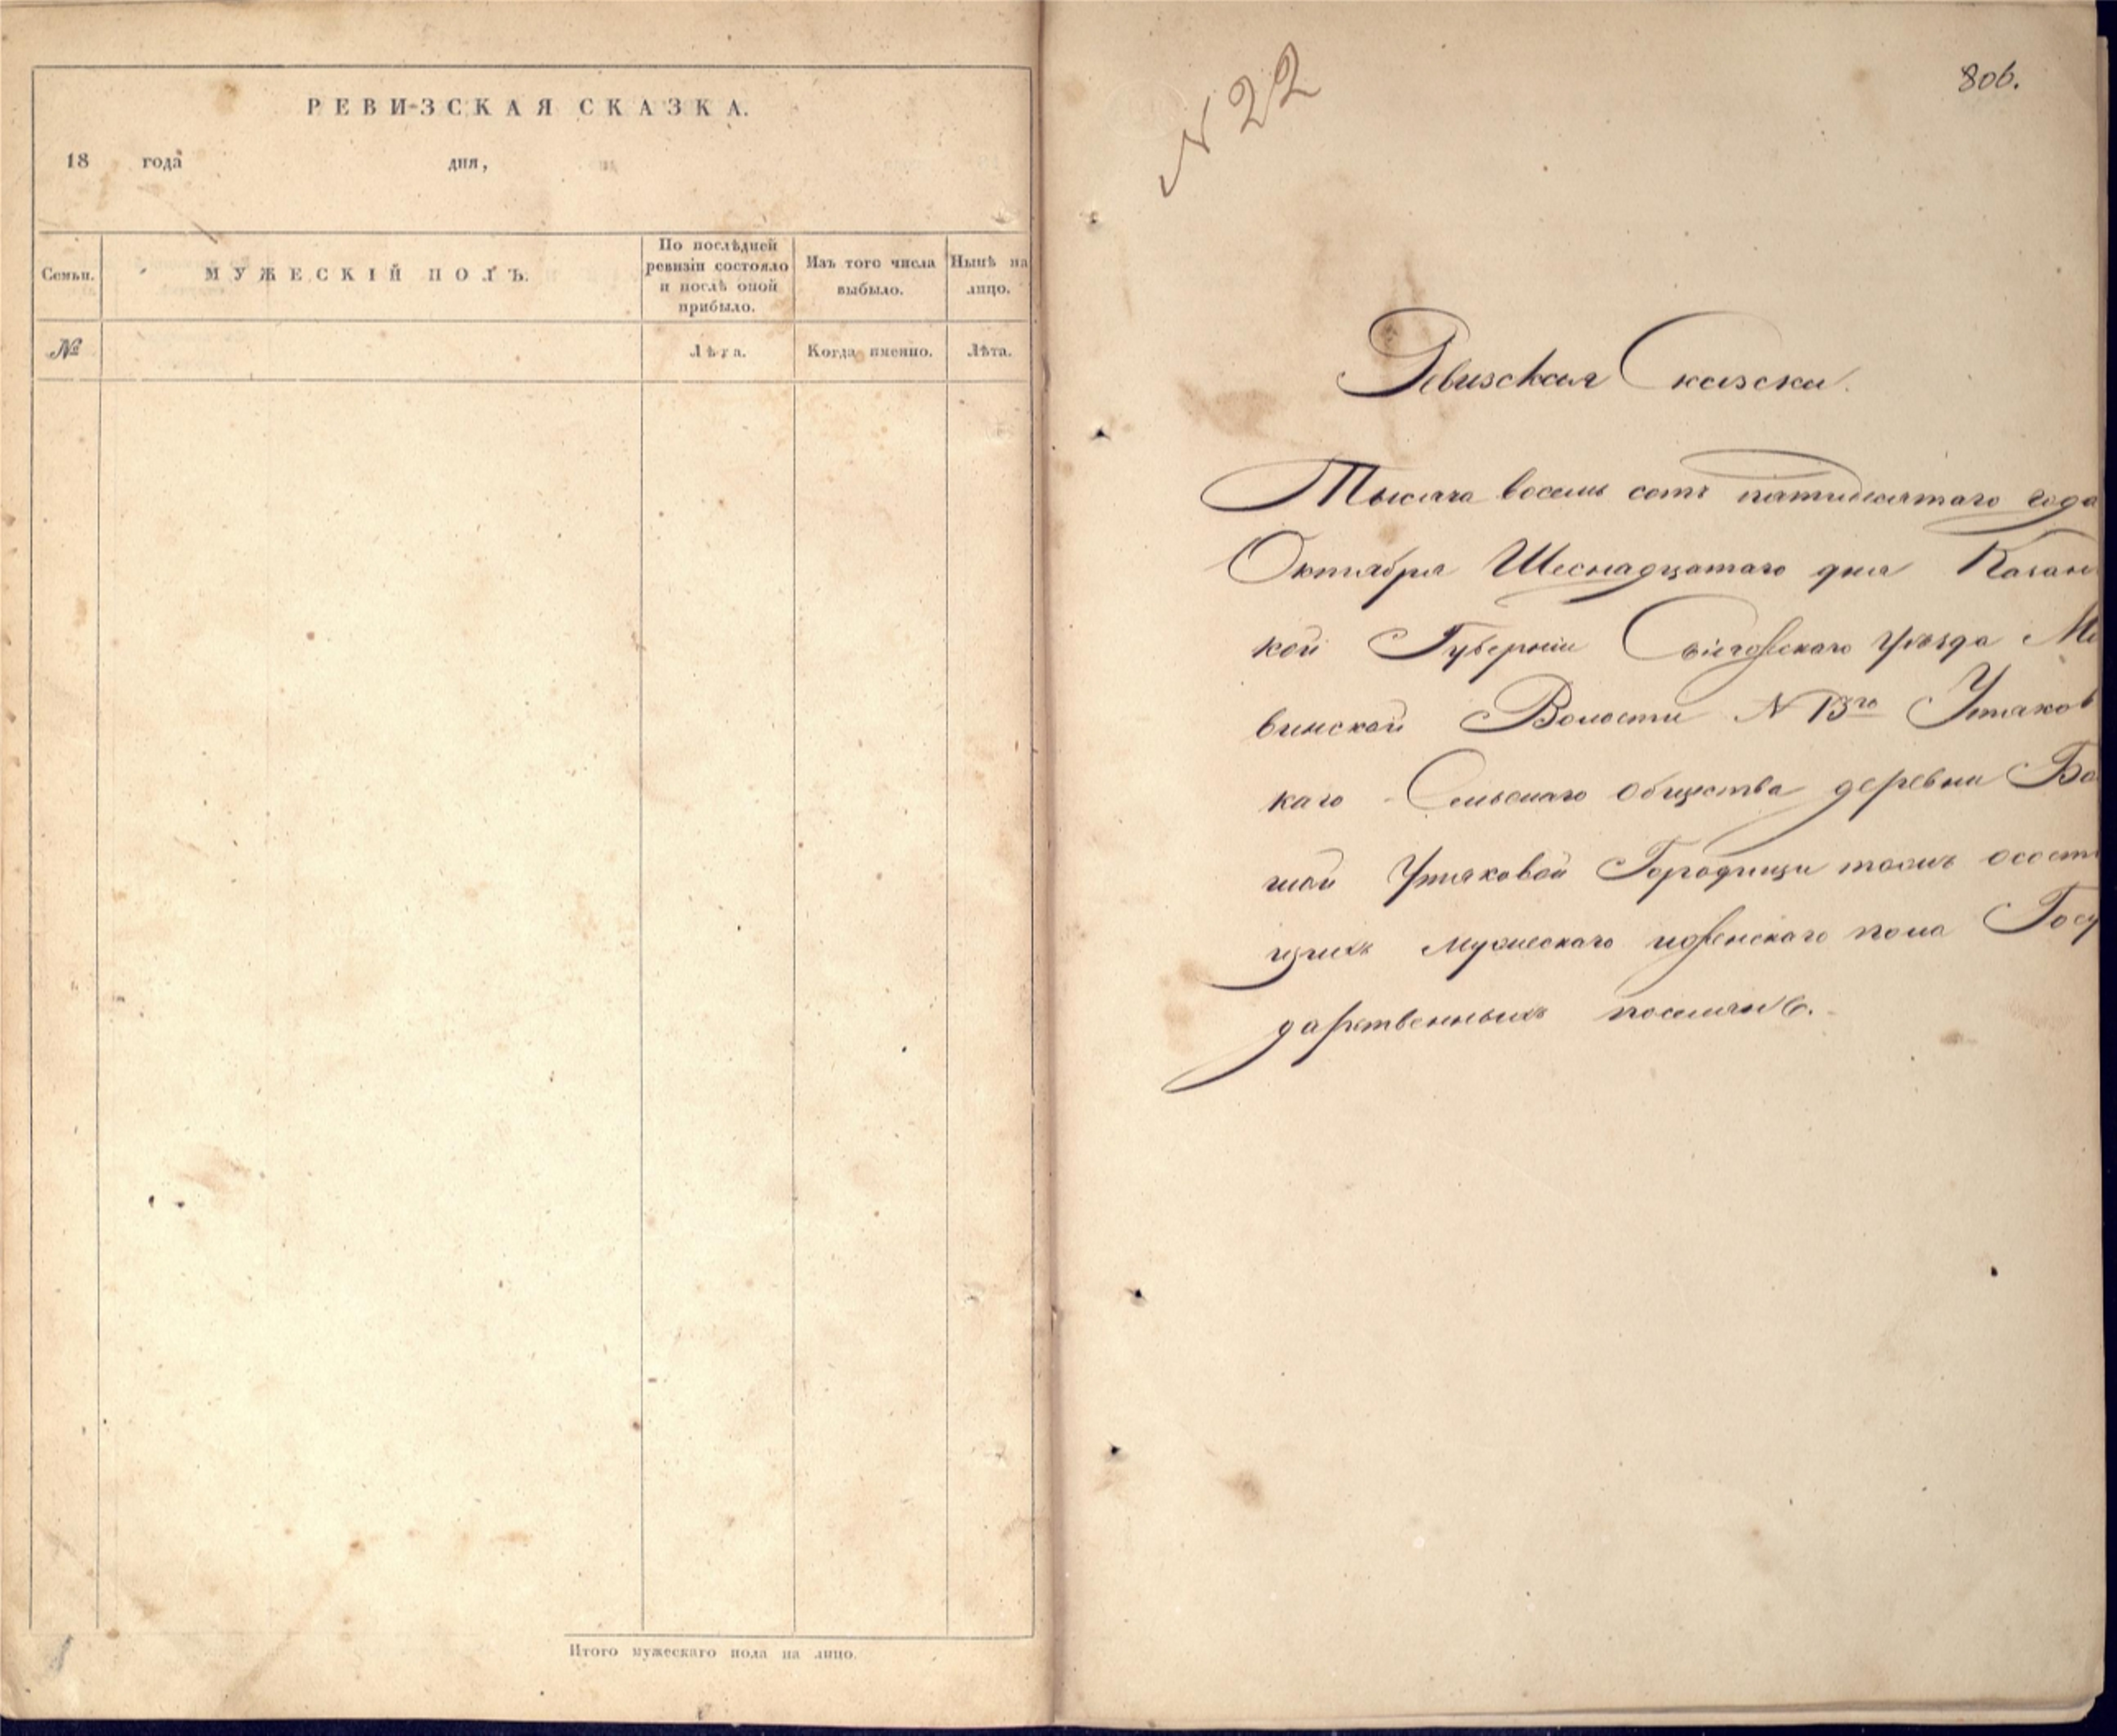 РЕВИЗСКАЯ СКАЗКА.
18 года дня,
Семьи.
МУЖЕСКІЙ ПОЛЪ.
По послѣдней
ревизіи состояло
и послѣ оной
прибыло.
Изъ того числа
выбыло.
Нынѣ на
лицо.
№
Лѣта.
Когда именно.
Лѣта.
Итого мужескаго пола на лицо.
N 22
806.
Ревизская Сказска.
Тысяча восемь сотъ пятидесятаго года
Октября Шеснадцатаго дня Казанс
кой Губерніи Свіяжскаго уѣзда
винской Волости N 13го Утяковс
каго Сельскаго общества деревни Бо
шой Утяковой Городищи тожъ осостоя
щихъ мужескаго иженскаго пола Госу
дарственныхъ поселянъ.